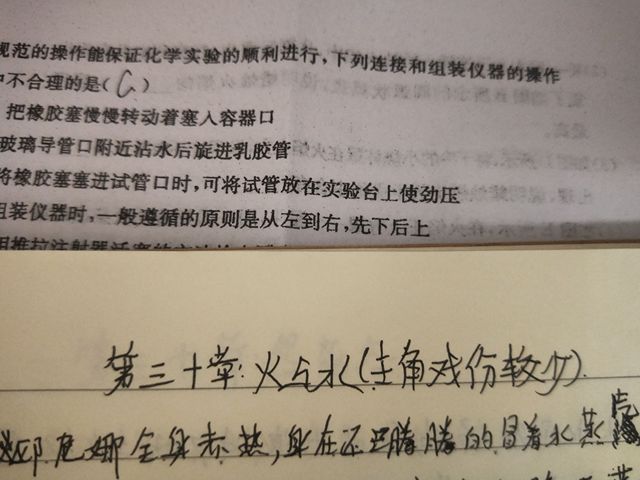 规范的操作能保证化学实验的顺利进行，下列连接和组装仪器的操作
中不合理的是（C）
把橡胶塞慢慢转动着塞入容器口
玻璃导管口附近沾水后旋进乳胶管
将橡胶塞塞进试管口时，可将试管放在实验台上使劲压
组装仪器时，一般遵循的原则是从左到右，先下后上
用推拉注射器活塞的方法
第三十章：火与水（主角戏份较少）
尼娜全身赤热，身在还四腾腾的冒着水蒸